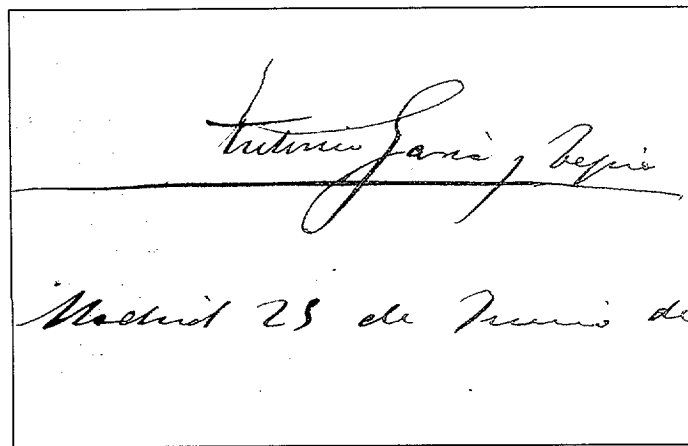 Antonio García y Tapia
Madrid 25 de Junio de